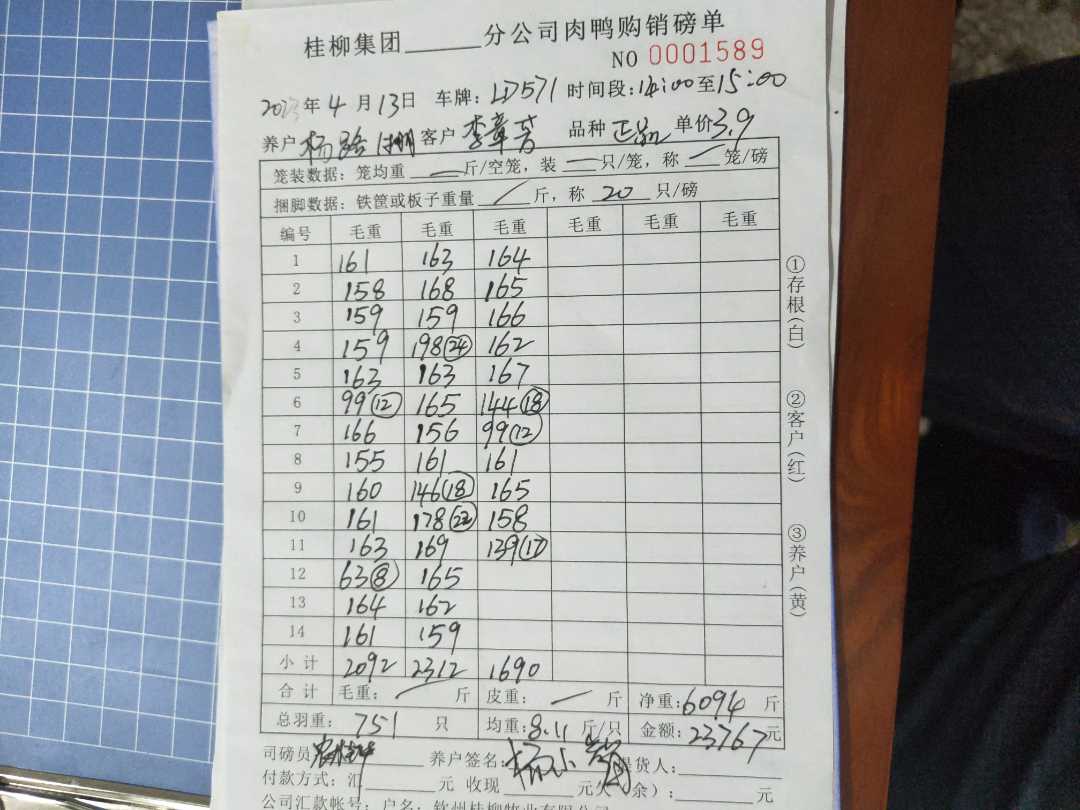 桂柳集团______分公司肉鸭购销磅单
NO 0001589
2023年4月13日 车牌：LD571 时间段：14:00至15:00
养户 杨 客户 李章芳 品种 正品 单价3.9
笼装数据：笼均重 — 斤/空笼，装 — 只/笼，称 — 笼/磅
捆脚数据：铁筐或板子重量 / 斤，称 20 只/磅
编号 毛重 毛重 毛重 毛重 毛重 毛重
1 161 163 164
2 158 168 165
3 159 159 166
4 159 198(24) 162
5 163 163 167
6 99(12) 165 144(18)
7 166 156 99(12)
8 155 161 161
9 160 146(18) 165
10 161 178(22) 158
11 163 169 139(17)
12 63(8) 165
13 164 162
14 161 159
小计 2092 2312 1690
合计 毛重： / 斤 皮重： — 斤 净重：6094 斤
总羽重： 751 只 均重：8.11 斤/只 金额：23767元
司磅员 养户签名： 杨小 提货人：
付款方式：汇______元 收现______元欠（余）：______元
公司汇款帐号：户名：钦州桂柳牧业有限公司
①存根(白)
②客户(红)
③养户(黄)